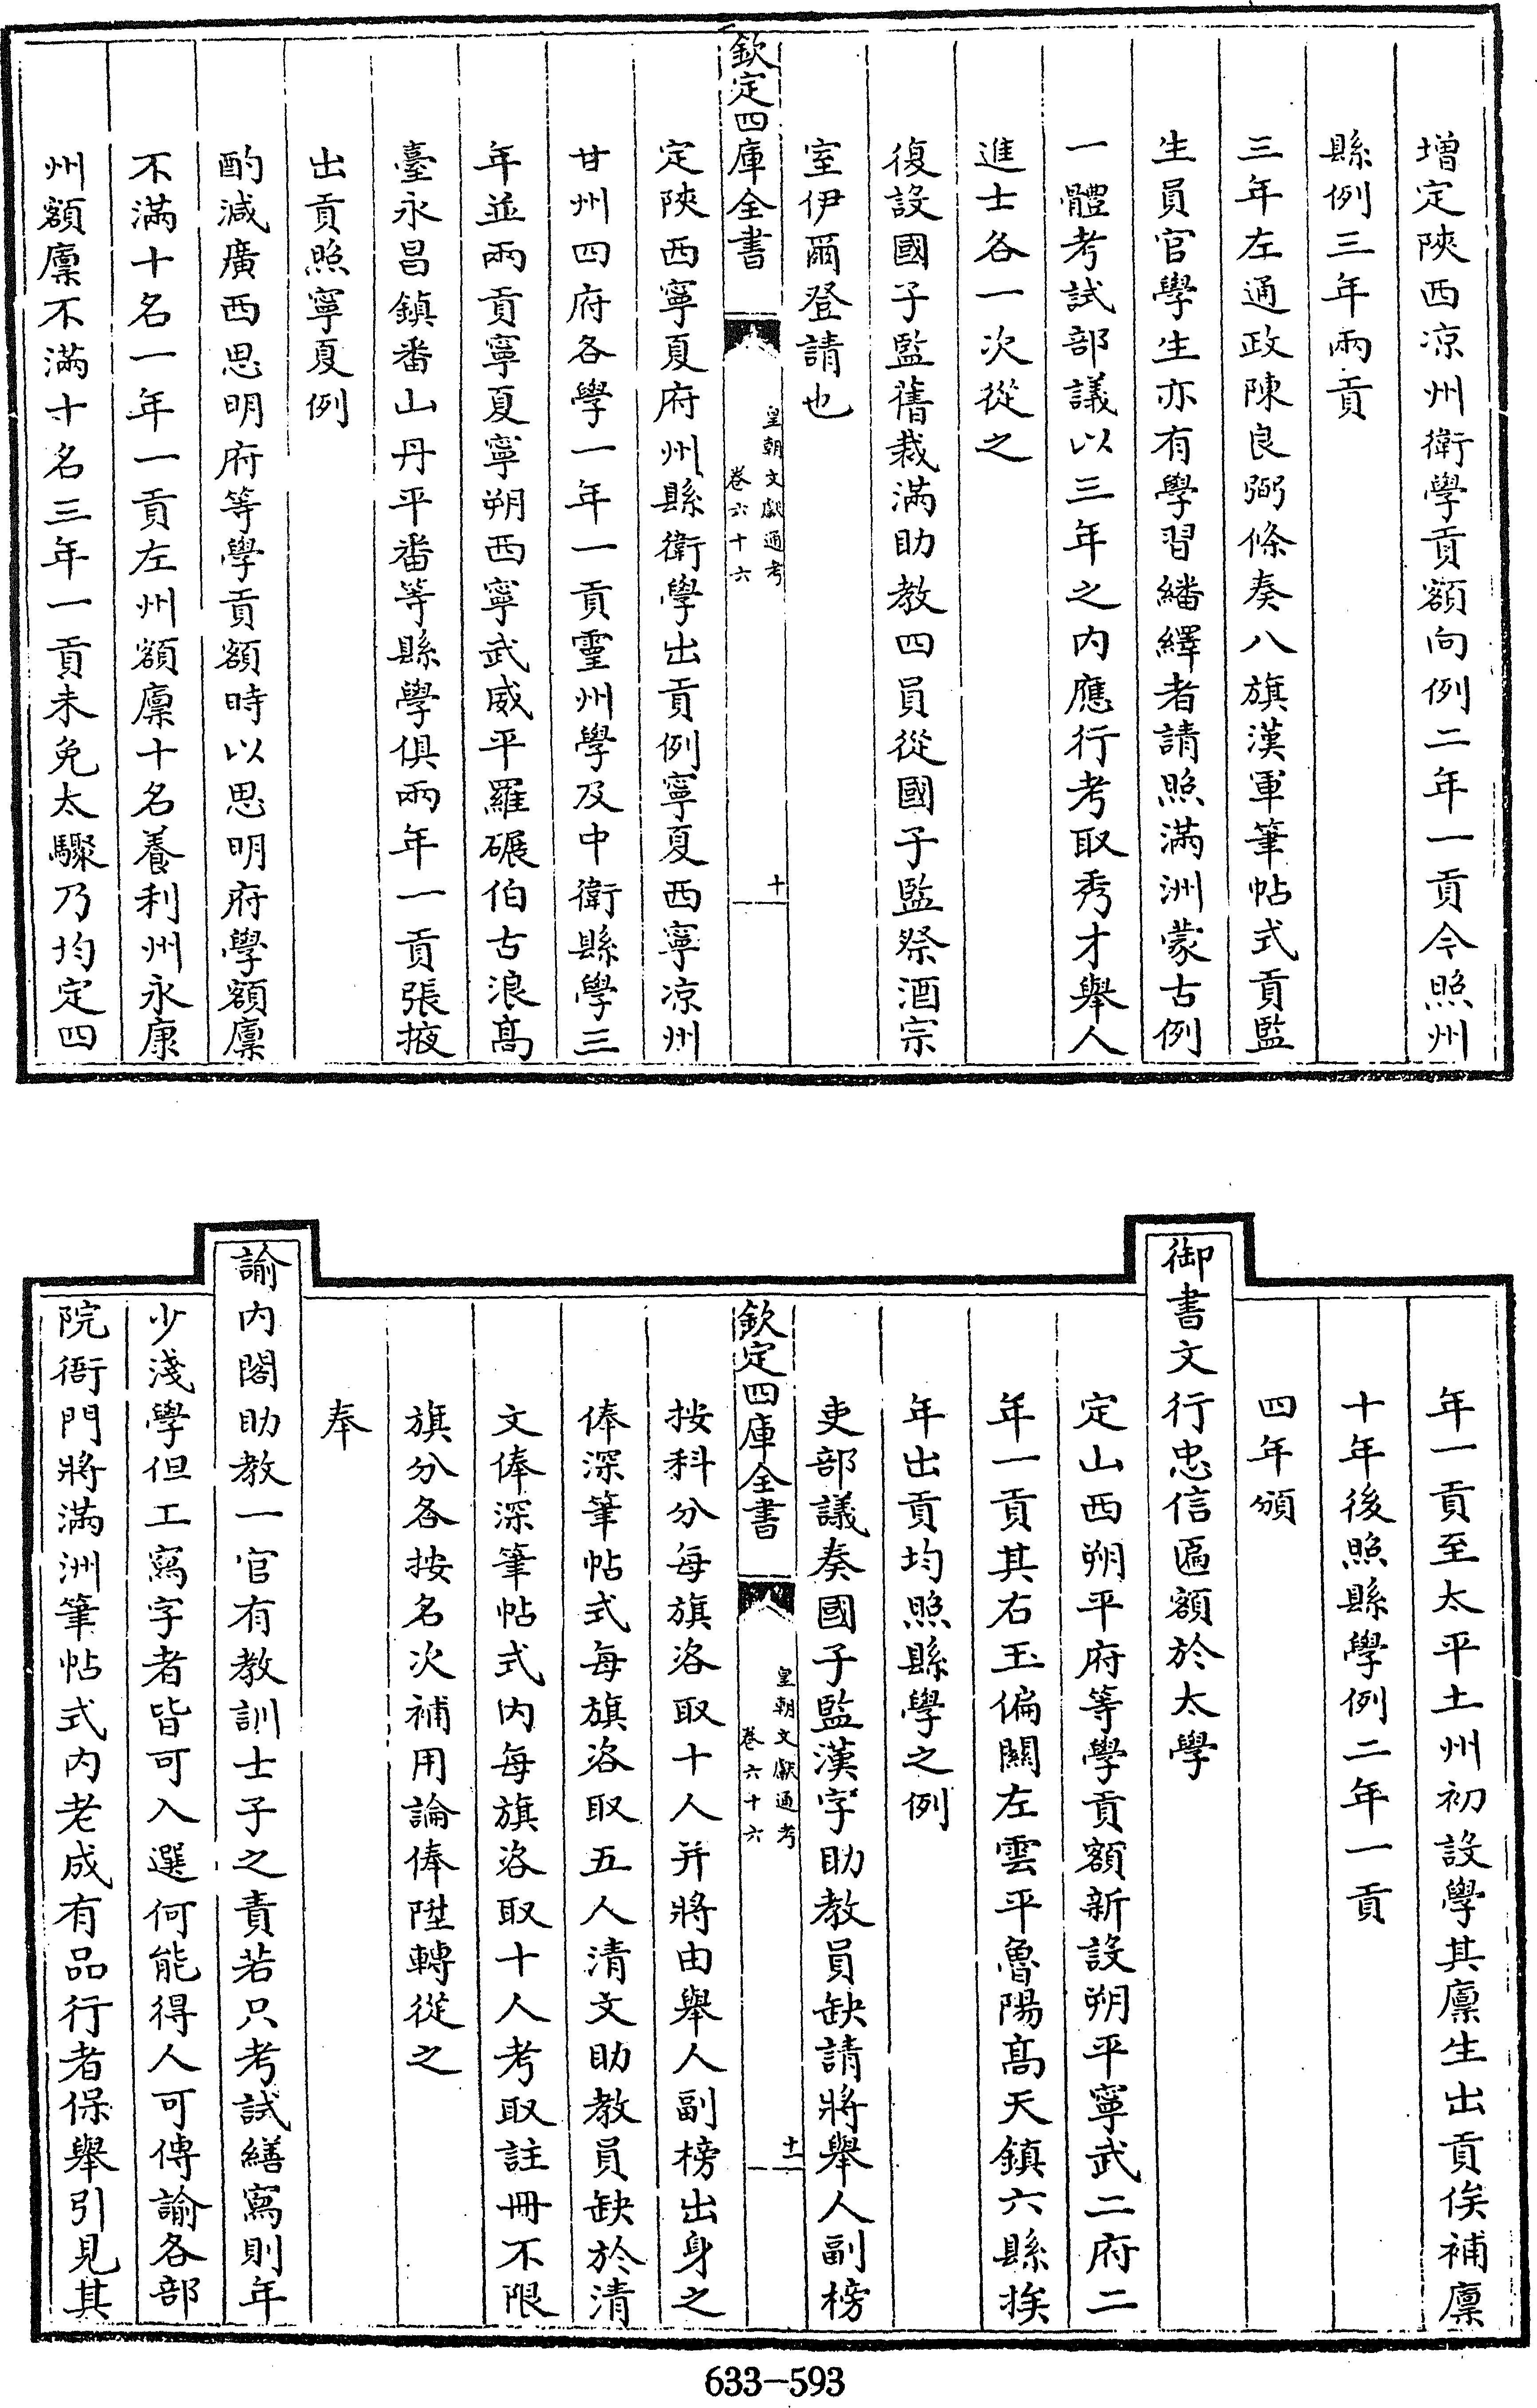 增定陜西凉州衛學貢額向例二年一貢今照州
縣例三年兩貢
三年左通政陳良弼條奏八旗漢軍筆帖式貢監
生員官學生亦有學習繙繹者請照滿洲蒙古例
一體考試部議以三年之內應行考取秀才舉人
進士各一次從之
復設國子監舊裁滿助教四員從國子監祭酒宗
室伊爾登請也
欽定四庫全書
皇朝文獻通考
卷六十六
十
定陜西寧夏府州縣衛學出貢例寧夏西寧凉州
甘州四府各學一年一貢靈州學及中衛縣學三
年並兩貢寧夏寧朔西寧武威平羅碾伯古浪髙
臺永昌鎮番山丹平番等縣學俱兩年一貢張掖
出貢照寧夏例
酌減廣西思明府等學貢額時以思明府學額廩
不滿十名一年一貢左州額廩十名養利州永康
州額廩不滿十名三年一貢未免太驟乃均定四
年一貢至太平土州初設學其廩生出貢俟補廩
十年後照縣學例二年一貢
四年頒
御書文行忠信匾額於太學
定山西朔平府等學貢額新設朔平寧武二府二
年一貢其右玉偏關左雲平魯陽髙天鎮六縣挨
年出貢均照縣學之例
吏部議奏國子監漢字助教員缺請將舉人副榜
欽定四庫全書
皇朝文獻通考
卷六十六
十一
按科分每旗洛取十人并將由舉人副榜出身之
俸深筆帖式每旗洛取五人清文助教員缺於清
文俸深筆帖式內每旗洛取十人考取註冊不限
旗分各按名次補用論俸陞轉從之
奉
諭內閣助教一官有教訓士子之責若只考試繕寫則年
少淺學但工寫字者皆可入選何能得人可傳諭各部
院衙門將滿洲筆帖式內老成有品行者保舉引見其
633-593